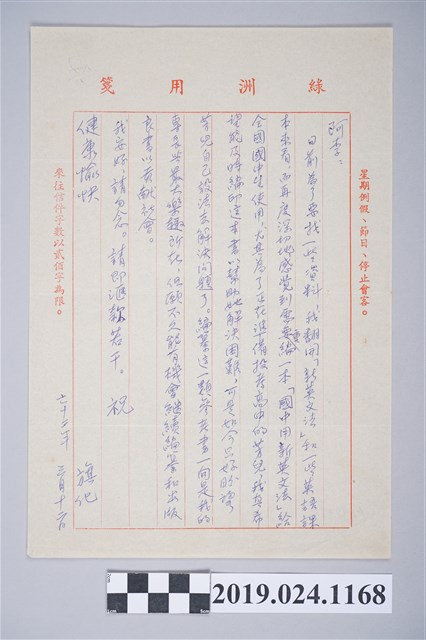 綠洲用箋
星期例假、節日、停止會客。
阿李：
日前為了尋找一些資料，我翻開「新英文法」和一些英語課
本來看，而再度深切地感覺到需要編一本「國中用新英文法」給
全國國中生使用，尤其為了正在準備投考高中的芳兒，我真希
望能及時編印這本書以幫助她解決困難，可是如今只好盼望
芳兒自己設法去解決問題了。編纂這一類參考書一向是我的
專長與最大樂趣所在，但願不久能有機會繼續編著和出版
良書以貢獻社會。
我安好，請勿念。請即滙款若干。祝
健康愉快
旗化
六十二年三月十六日
來往信件字數以貳佰字為限。
2019.024.1168